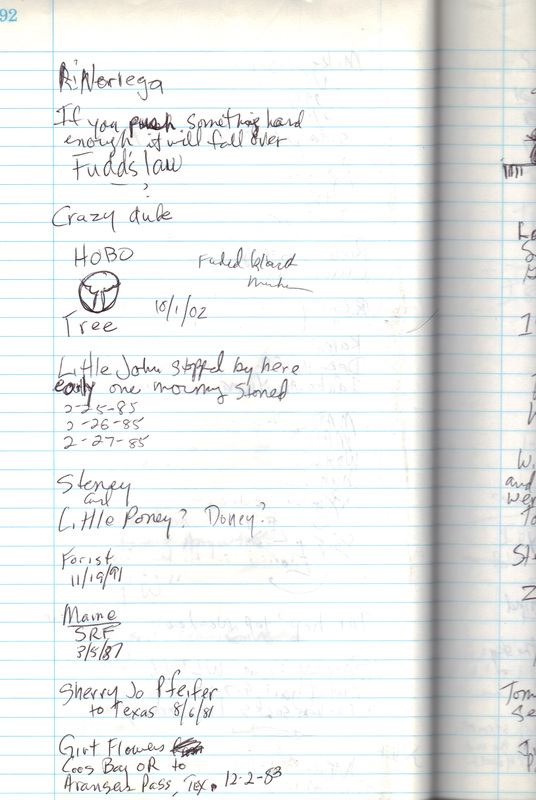 92
R. Noriega
If you push something hard
enough it will fall over
Fudd's law
Crazy dude
HOBO
Tree
10/1/02
Little John stopped by here
early one morning stoned
2-25-85
2-26-85
2-27-85
and
Little Poney? Doney?
Forist
11/19/91
SRF
3/5/87
Sherry Jo Pfeifer
to Texas 8/6/81
Girt Flowers
Coos Bay OR to
Aransas Pass, Tex. 12-2-83